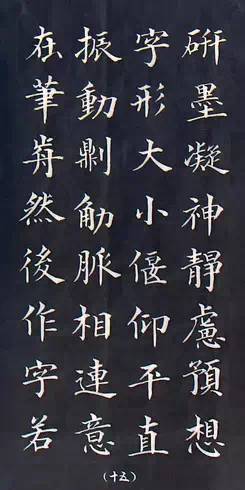 硏墨凝神靜慮預想
字形大小偃仰平直
振動則觔脈相連意
在筆歬然後作字若
(十五)